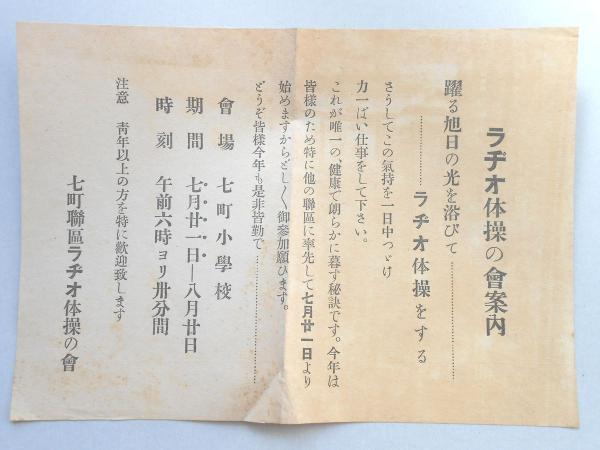 ラヂオ体操の會案內
躍る旭日の光を浴びて……………………
……………ラヂオ体操をする
さうしてこの氣持を一日中つゞけ
力一ぱい仕事をして下さい。
これが唯一の、健康で朗らかに暮す秘訣です。今年は
皆様のため特に他の聯區に率先して七月廿一日より
始めますからどし〱御參加願ひます。
どうぞ皆様今年も是非皆勤で……………………
會場　七町小學校
期間　七月廿一日―八月廿日
時刻　午前六時ヨリ卅分間
注意　靑年以上の方を特に歡迎致します
七町聯區ラヂオ体操の會